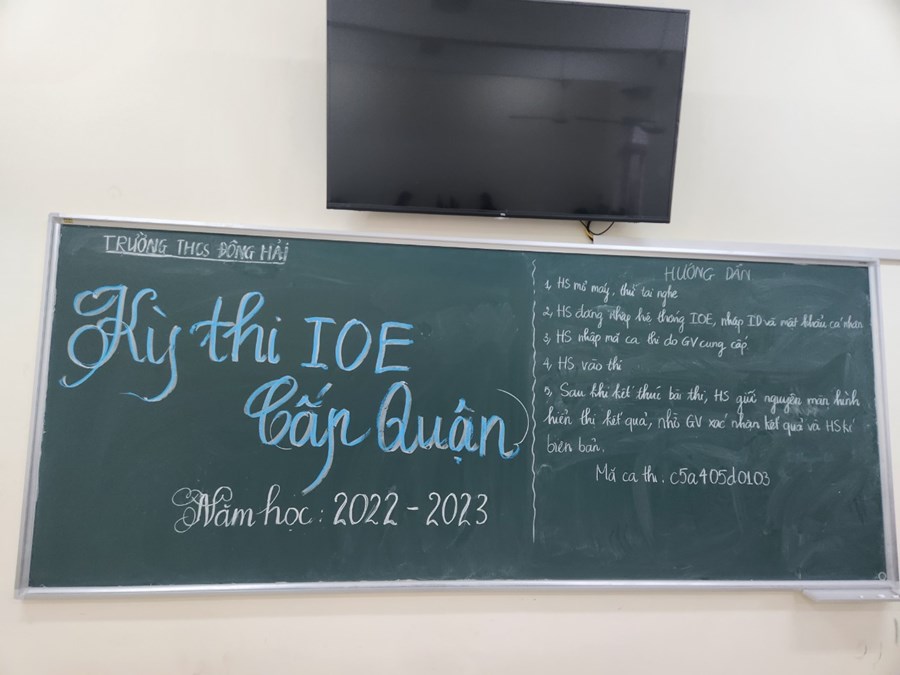 TRƯỜNG THCS ĐÔNG HẢI
Kỳ thi IOE
Cấp Quận
Năm học: 2022 - 2023
HƯỚNG DẪN
1, HS mở máy, thử tai nghe
2, HS đăng nhập hệ thống IOE, nhập ID và mật khẩu cá nhân
3, HS nhập mã ca thi do GV cung cấp
4, HS vào thi
5, Sau khi kết thúc bài thi, HS giữ nguyên màn hình
hiển thị kết quả, nhờ GV xác nhận kết quả và HS kí
biên bản.
Mã ca thi: c5a405d0103